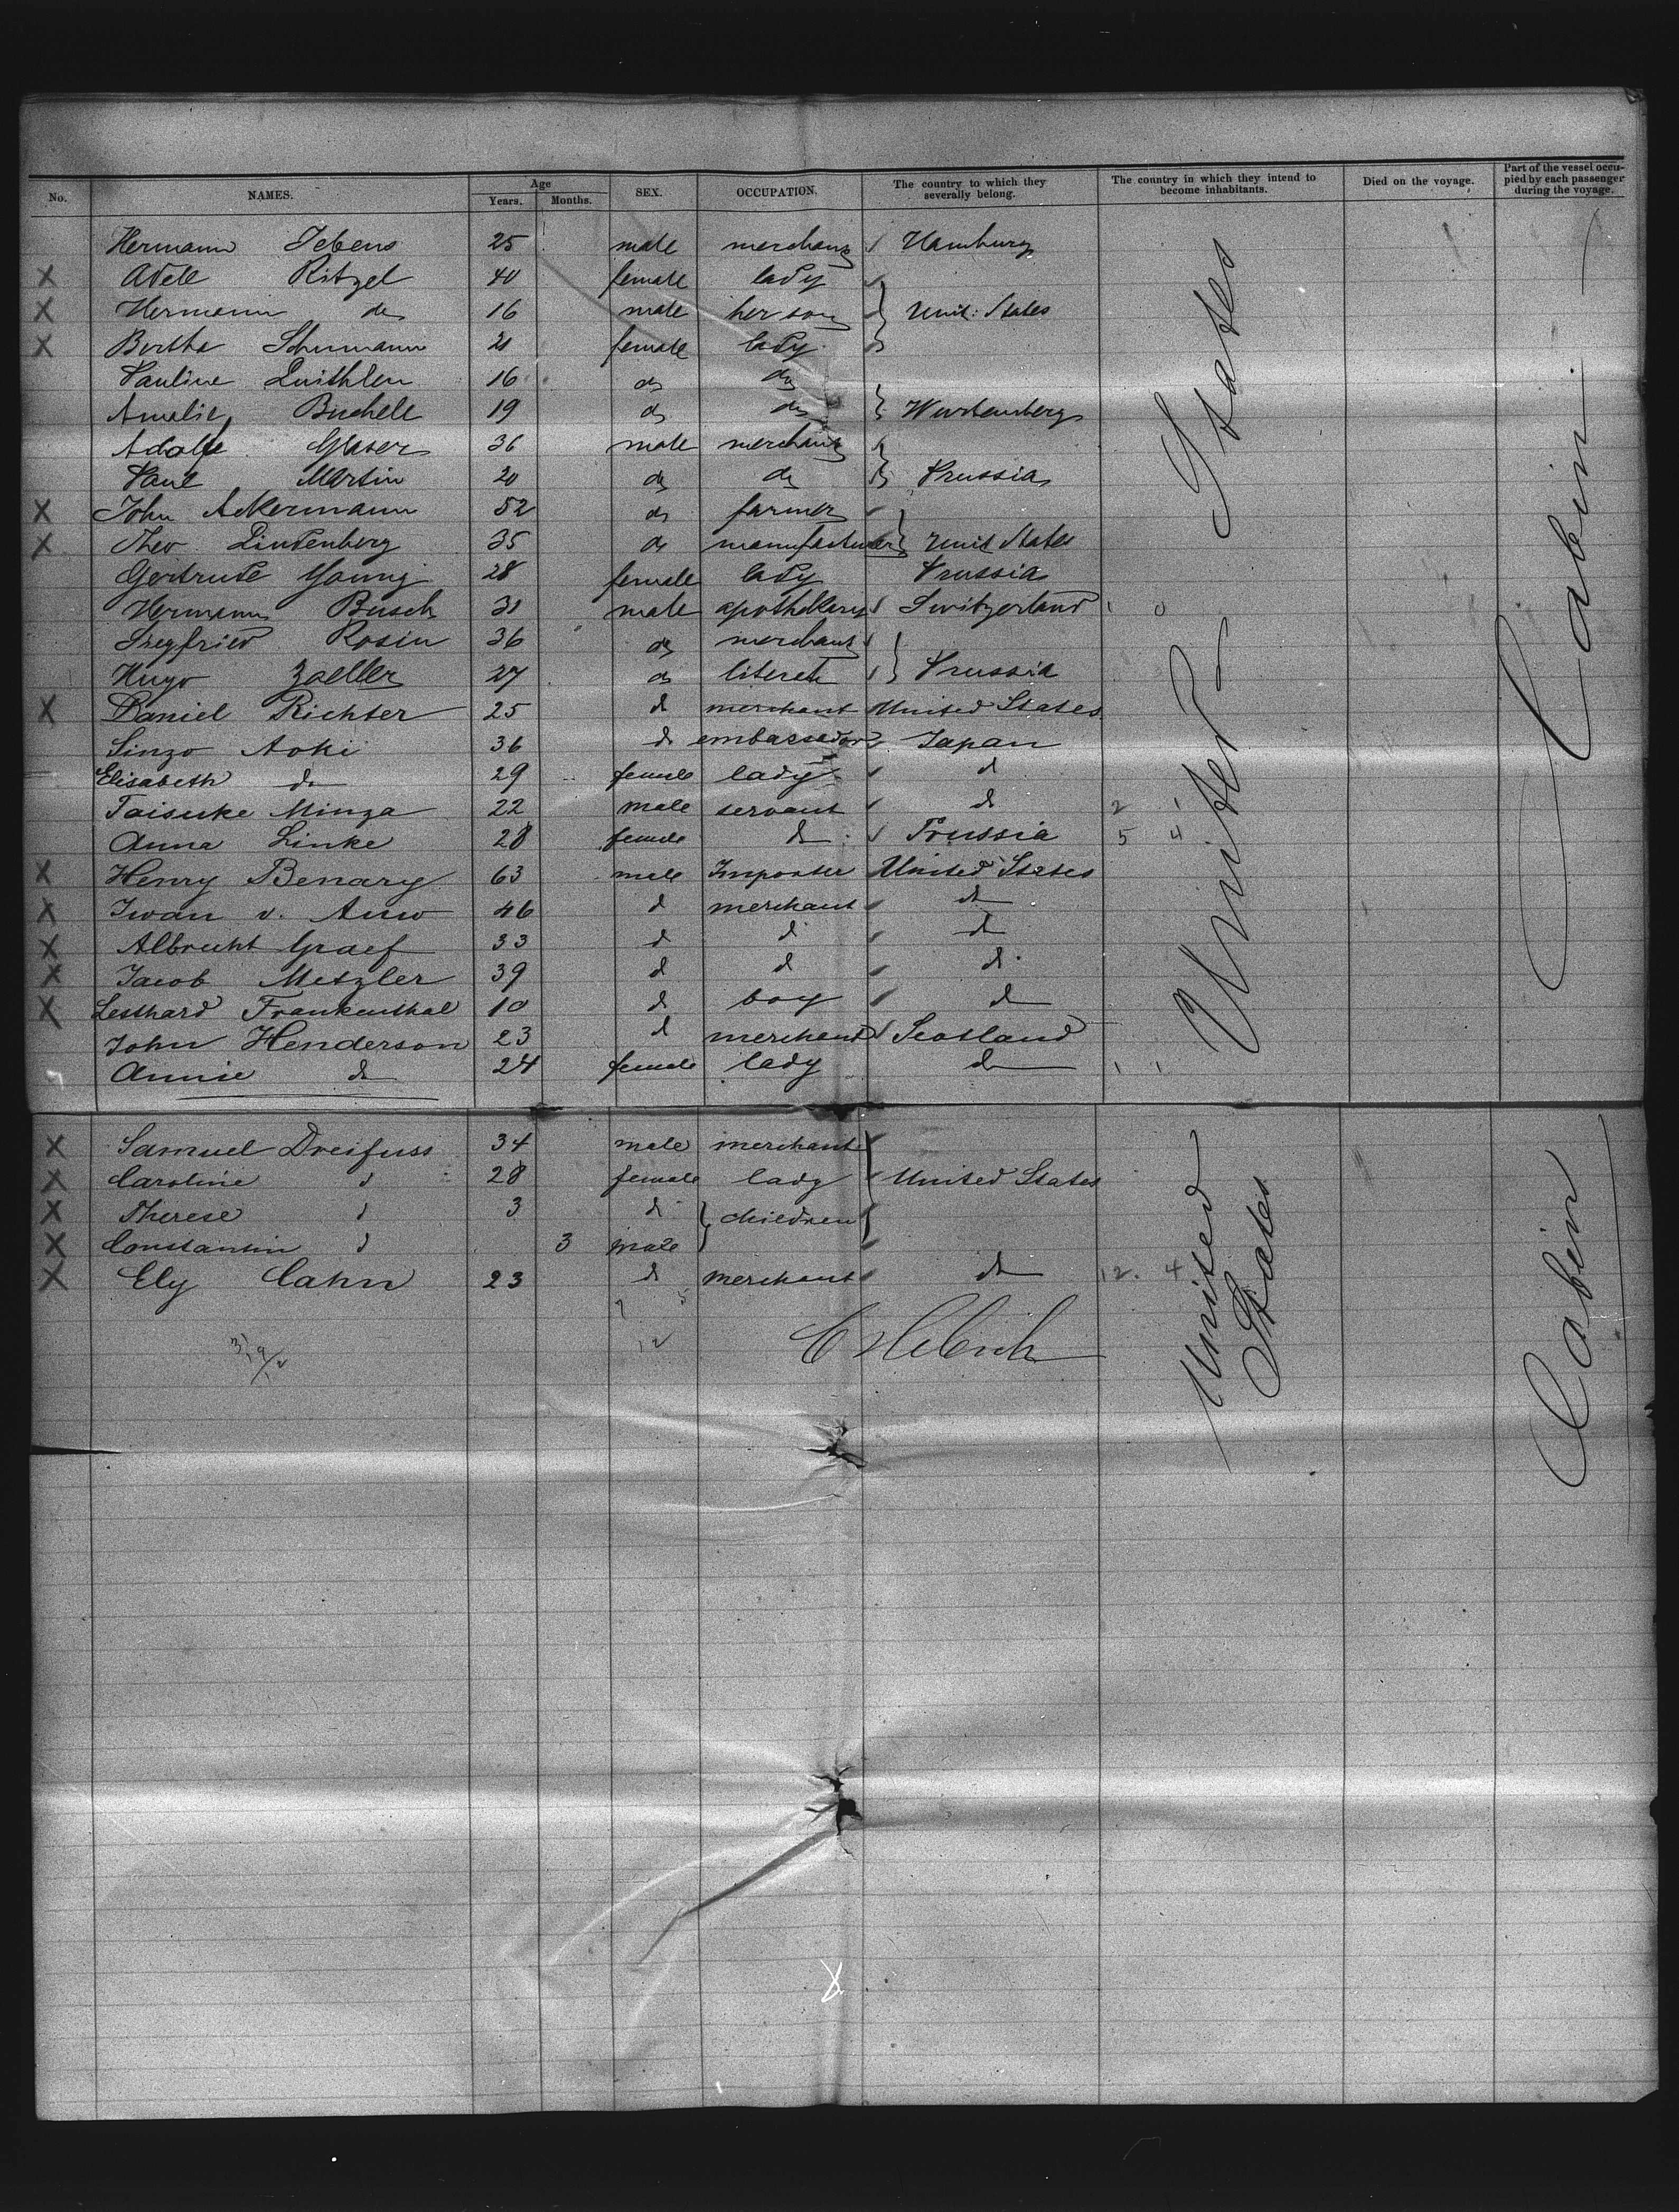 No. NAMES. Age Years. Months. SEX. OCCUPATION. The country to which they severally belong. The country in which they intend to become inhabitants. Died on the voyage. Part of the vessel occupied by each passenger during the voyage.
Hermann Jebens 25 male merchant Hamburg
X Adele Ritzel 40 female lady
X Hermann do 16 male her son } Unit: States
X Bertha Schumann 21 female lady
Pauline Quithlen 16 do do
Amelie Buchele 19 do do } Wurtemberg
Adolf Glaser 36 male merchant
Paul Martin 20 do do } Prussia
X John Ackermann 52 do farmer
X Theo Lindenberg 35 do manufacturer } Unit States
Gertrude Young 28 female lady Prussia
Hermann Busch 31 male apothekary Switzerland 1 0
Siegfried Rosin 36 do merchant
Hugo Zoeller 27 do literat } Prussia
X Daniel Richter 25 d merchant United States
Sinzo Aoki 36 do embassador Japan
Elisabeth do 29 female lady d
Taisuke Minza 22 male servant d 2 1
Anna Linke 28 female do Prussia 5 4
X Henry Benary 63 male Importer United States
X Iwan v. Auw 46 d merchant do
X Albrecht Graef 33 d d do
X Jacob Metzler 39 d d d
X Lesthard Frankenthal 10 d boy d
John Henderson 23 d merchant Scotland
Annie do 24 female lady do 1 1
United States
Cabin
X Samuel Dreifuss 34 male merchant
X Caroline d 28 female lady United States
X Therese d 3 d } children
X Constantin d 3 male
X Ely Cahn 23 d merchant do 12. 4
12
United States
Cabin